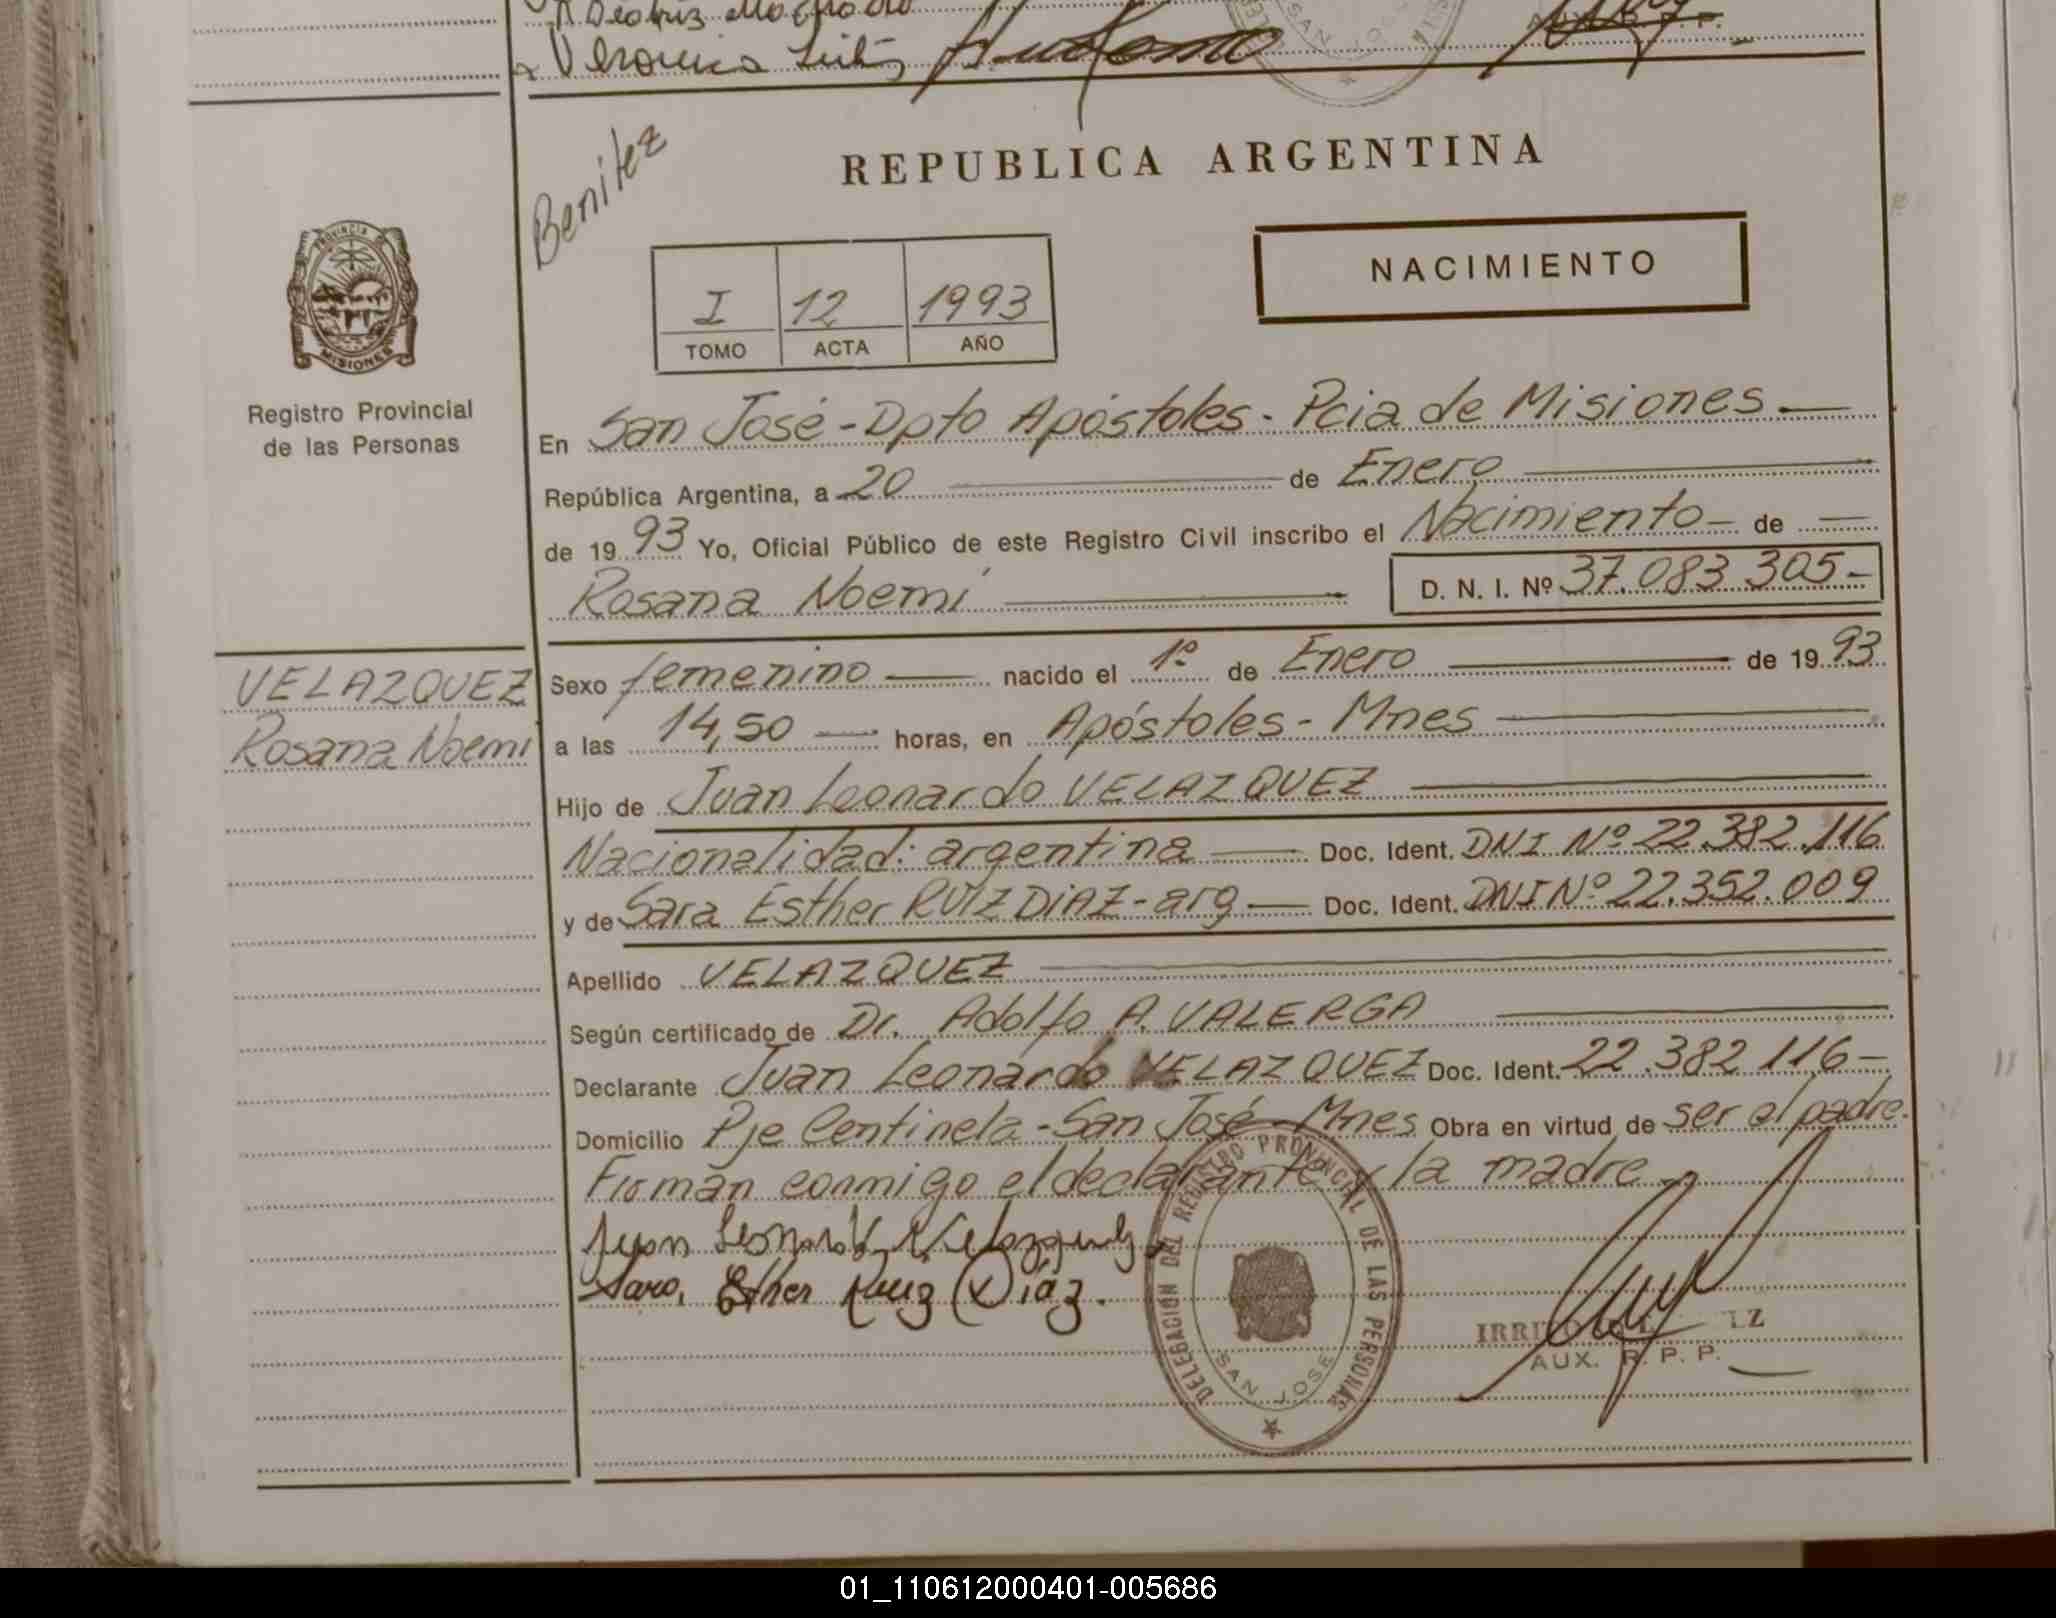 Beatriz Machado
Veronica
SAN JO
AUX. R. P. P.
Benitez
REPUBLICA ARGENTINA
PROVINCIA DE
MISIONES
Registro Provincial
de las Personas
I 12 1993
TOMO ACTA AÑO
NACIMIENTO
En San José - Dpto Apóstoles - Pcia de Misiones
República Argentina, a 20 de Enero
de 19 93 Yo, Oficial Público de este Registro Civil inscribo el Nacimiento de
Rosana Noemí D. N. I. Nº 37.083.305
VELAZQUEZ
Rosana Noemi
Sexo femenino nacido el 1º de Enero de 19 93
a las 14,50 horas, en Apóstoles - Mnes
Hijo de Juan Leonardo VELAZQUEZ
Nacionalidad: argentina Doc. Ident. DNI Nº 22.382.116
y de Sara Esther RUIZ DIAZ - arg Doc. Ident. DNI Nº 22.352.009
Apellido VELAZQUEZ
Según certificado de Dr. Adolfo A. VALERGA
Declarante Juan Leonardo VELAZQUEZ Doc. Ident. 22.382.116
Domicilio Pje Centinela - San José - Mnes Obra en virtud de ser el padre.
Firman conmigo el declarante y la madre
Juan Leonardo Velazquez
Sara Esther Ruiz Diaz.
DELEGACIÓN DEL REGISTRO PROVINCIAL DE LAS PERSONAS
SAN JOSE
AUX. R. P. P.
01_110612000401-005686